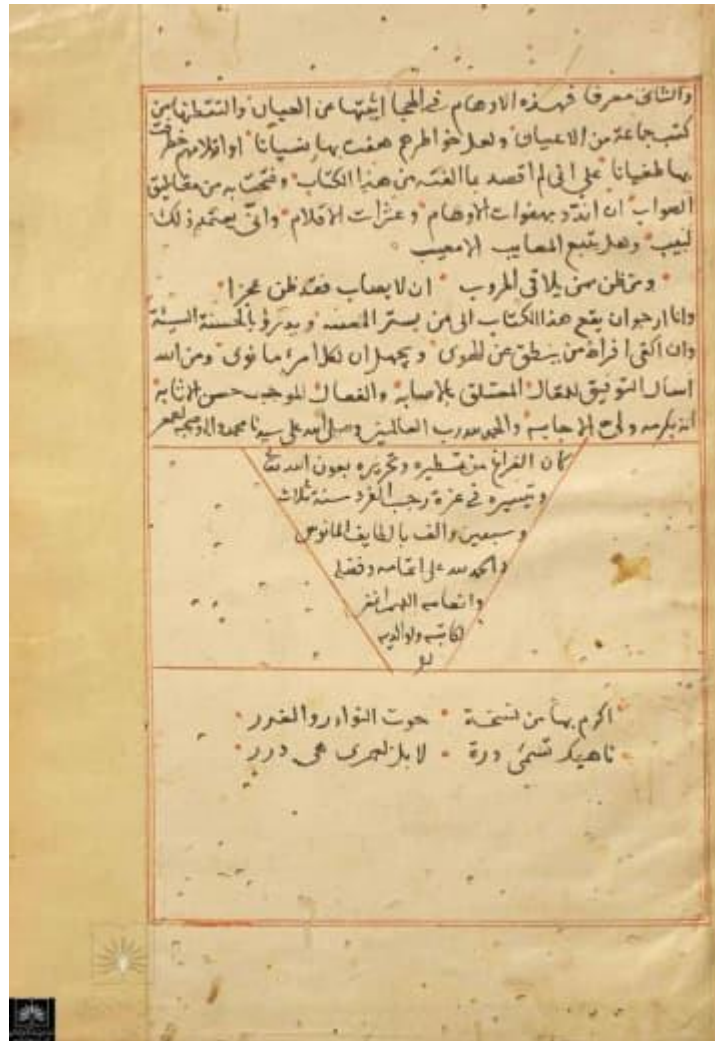 والثانى معرفا فهذه الاوهام فى الهجا اثبتها من العيان والتقطتها من
كتب جماعة من الاعيان ولعل خواطرهم هفت بها نسيانا او اقلامهم خطرفت
بها طغيانا على انى لم اقصد بما الفته من هذا الكتاب وفتحت به من مغاليق
الصواب ان اندد بهفوات الاوهام وعثرات الاقلام وانى يعتمد ذلك
لبيب وهل يتبع المعايب الا معيب
ومن ظن ممن يلاقى الحروب ان لا يصاب فقد ظن عجزا
وانا ارجو ان يقع هذا الكتاب الى من يستر المعيبه ويدرؤ بالحسنة السيئة
وان اكفى افراط من ينطق عن الهوى ويجهل ان لكل امرء ما نوى ومن الله
اسال التوفيق للمقال المتعلق بالاصابه والفعال الموجب حسن الاثابه
انه بكرمه ولى الاجابه والحمد لله رب العالمين وصلى الله على سيدنا محمد واله وصحبه
كان الفراغ من تسطيره وتحريره بعون الله تعا
وتيسيره فى غرة رجب الفرد سنة ثلاث
وسبعين والف بالطايف المانوس
والحمد لله على اتمامه وفضله
وانعامه اللهم اغفر
لكاتبه ولوالديه
اكرم بها من نسخة حوت النوادر والغرر
ناهيك تسمى درة لا بل لعمرى هى درر